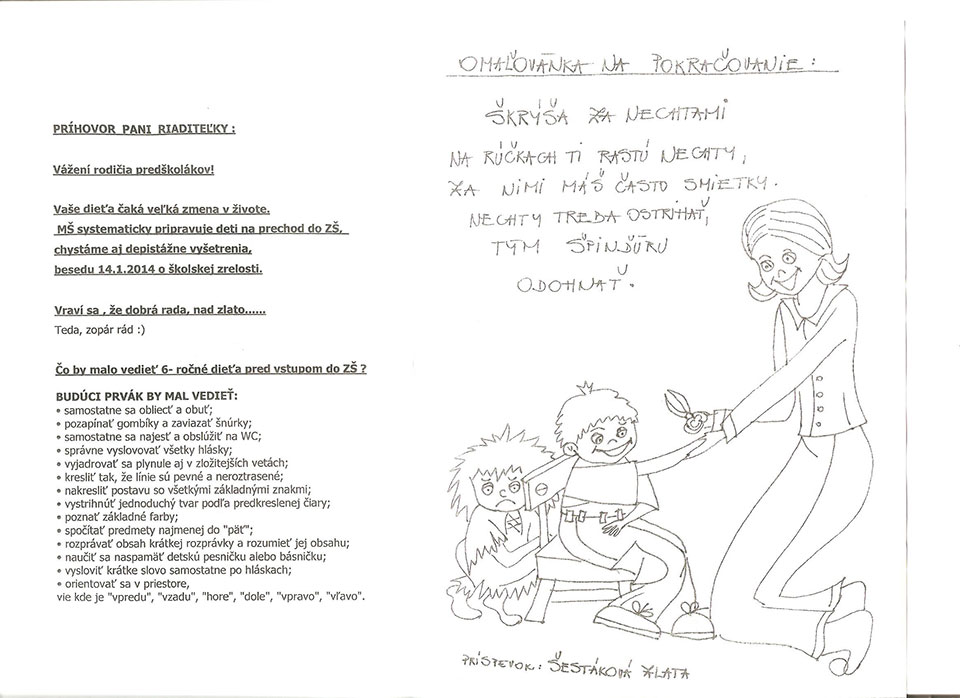 PRÍHOVOR PANI RIADITEĽKY :
Vážení rodičia predškolákov!
Vaše dieťa čaká veľká zmena v živote.
MŠ systematicky pripravuje deti na prechod do ZŠ,
chystáme aj depistážne vyšetrenia,
besedu 14.1.2014 o školskej zrelosti.
Vraví sa , že dobrá rada, nad zlato......
Teda, zopár rád :)
Čo by malo vedieť 6- ročné dieťa pred vstupom do ZŠ ?
BUDÚCI PRVÁK BY MAL VEDIEŤ:
• samostatne sa obliecť a obuť;
• pozapínať gombíky a zaviazať šnúrky;
• samostatne sa najesť a obslúžiť na WC;
• správne vyslovovať všetky hlásky;
• vyjadrovať sa plynule aj v zložitejších vetách;
• kresliť tak, že línie sú pevné a neroztrasené;
• nakresliť postavu so všetkými základnými znakmi;
• vystrihnúť jednoduchý tvar podľa predkreslenej čiary;
• poznať základné farby;
• spočítať predmety najmenej do "päť";
• rozprávať obsah krátkej rozprávky a rozumieť jej obsahu;
• naučiť sa naspamäť detskú pesničku alebo básničku;
• vysloviť krátke slovo samostatne po hláskach;
• orientovať sa v priestore,
vie kde je "vpredu", "vzadu", "hore", "dole", "vpravo", "vľavo".
OMAĽOVÁNKA NA POKRAČOVANIE :
ŠKRÝŠA ZA NECHTAMI
NA RÚČKACH TI RASTÚ NECHTY,
ZA NIMI MÁŠ ČASTO SMIETKY.
NECHTY TREBA OSTRIHAŤ,
TÝM ŠPINDÚRU
ODOHNAŤ.
PRÍSPEVOK: ŠESTÁKOVÁ ZLATA